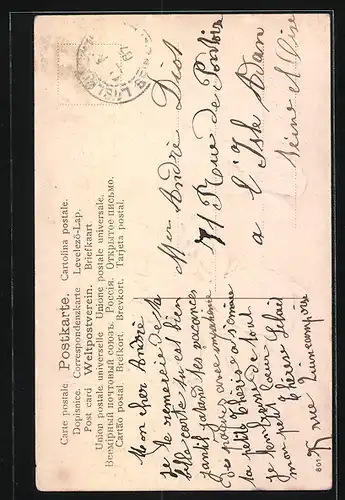 Carte postale Postkarte. Cartolina postale.
Dopisnice. Correspondenzkarte Levelező-Lap.
Post card Weltpostverein. Briefkaart
Union postale universelle Unione postale universale.
Всемірный почтовый союзъ. Россия. Открытое письмо.
Cartão postal Brefkort. Brevkort. Tarjeta postal.
Mon cher André
je te remercie de ta
belle carte tu est bien
gentil pendant les vacances
Des
ta petite Thérèse
je t'embrasse de tout
mon petit coeur
Thérèse
rue Quincampoix
Mr André Diot
71 Rue de
a l'Isle Adam
Seine et Oise
801